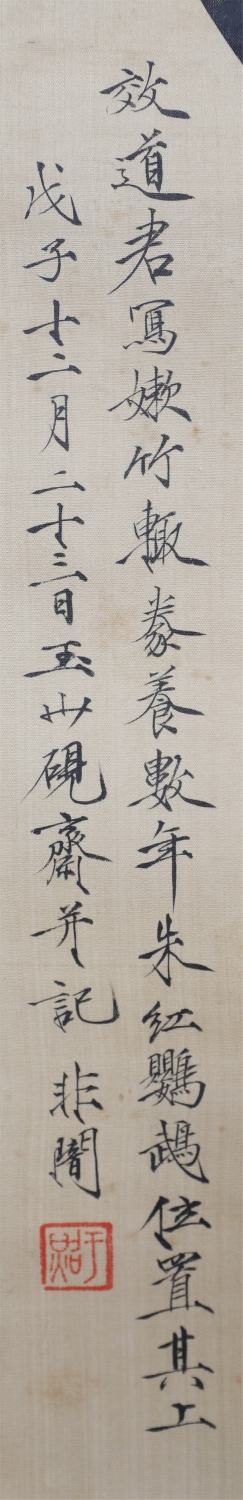 效道君寫嫩竹輒豢養數年朱紅鸚鵡位置其上
戊子十二月二十三日玉山硯齋并記 非闇
于照